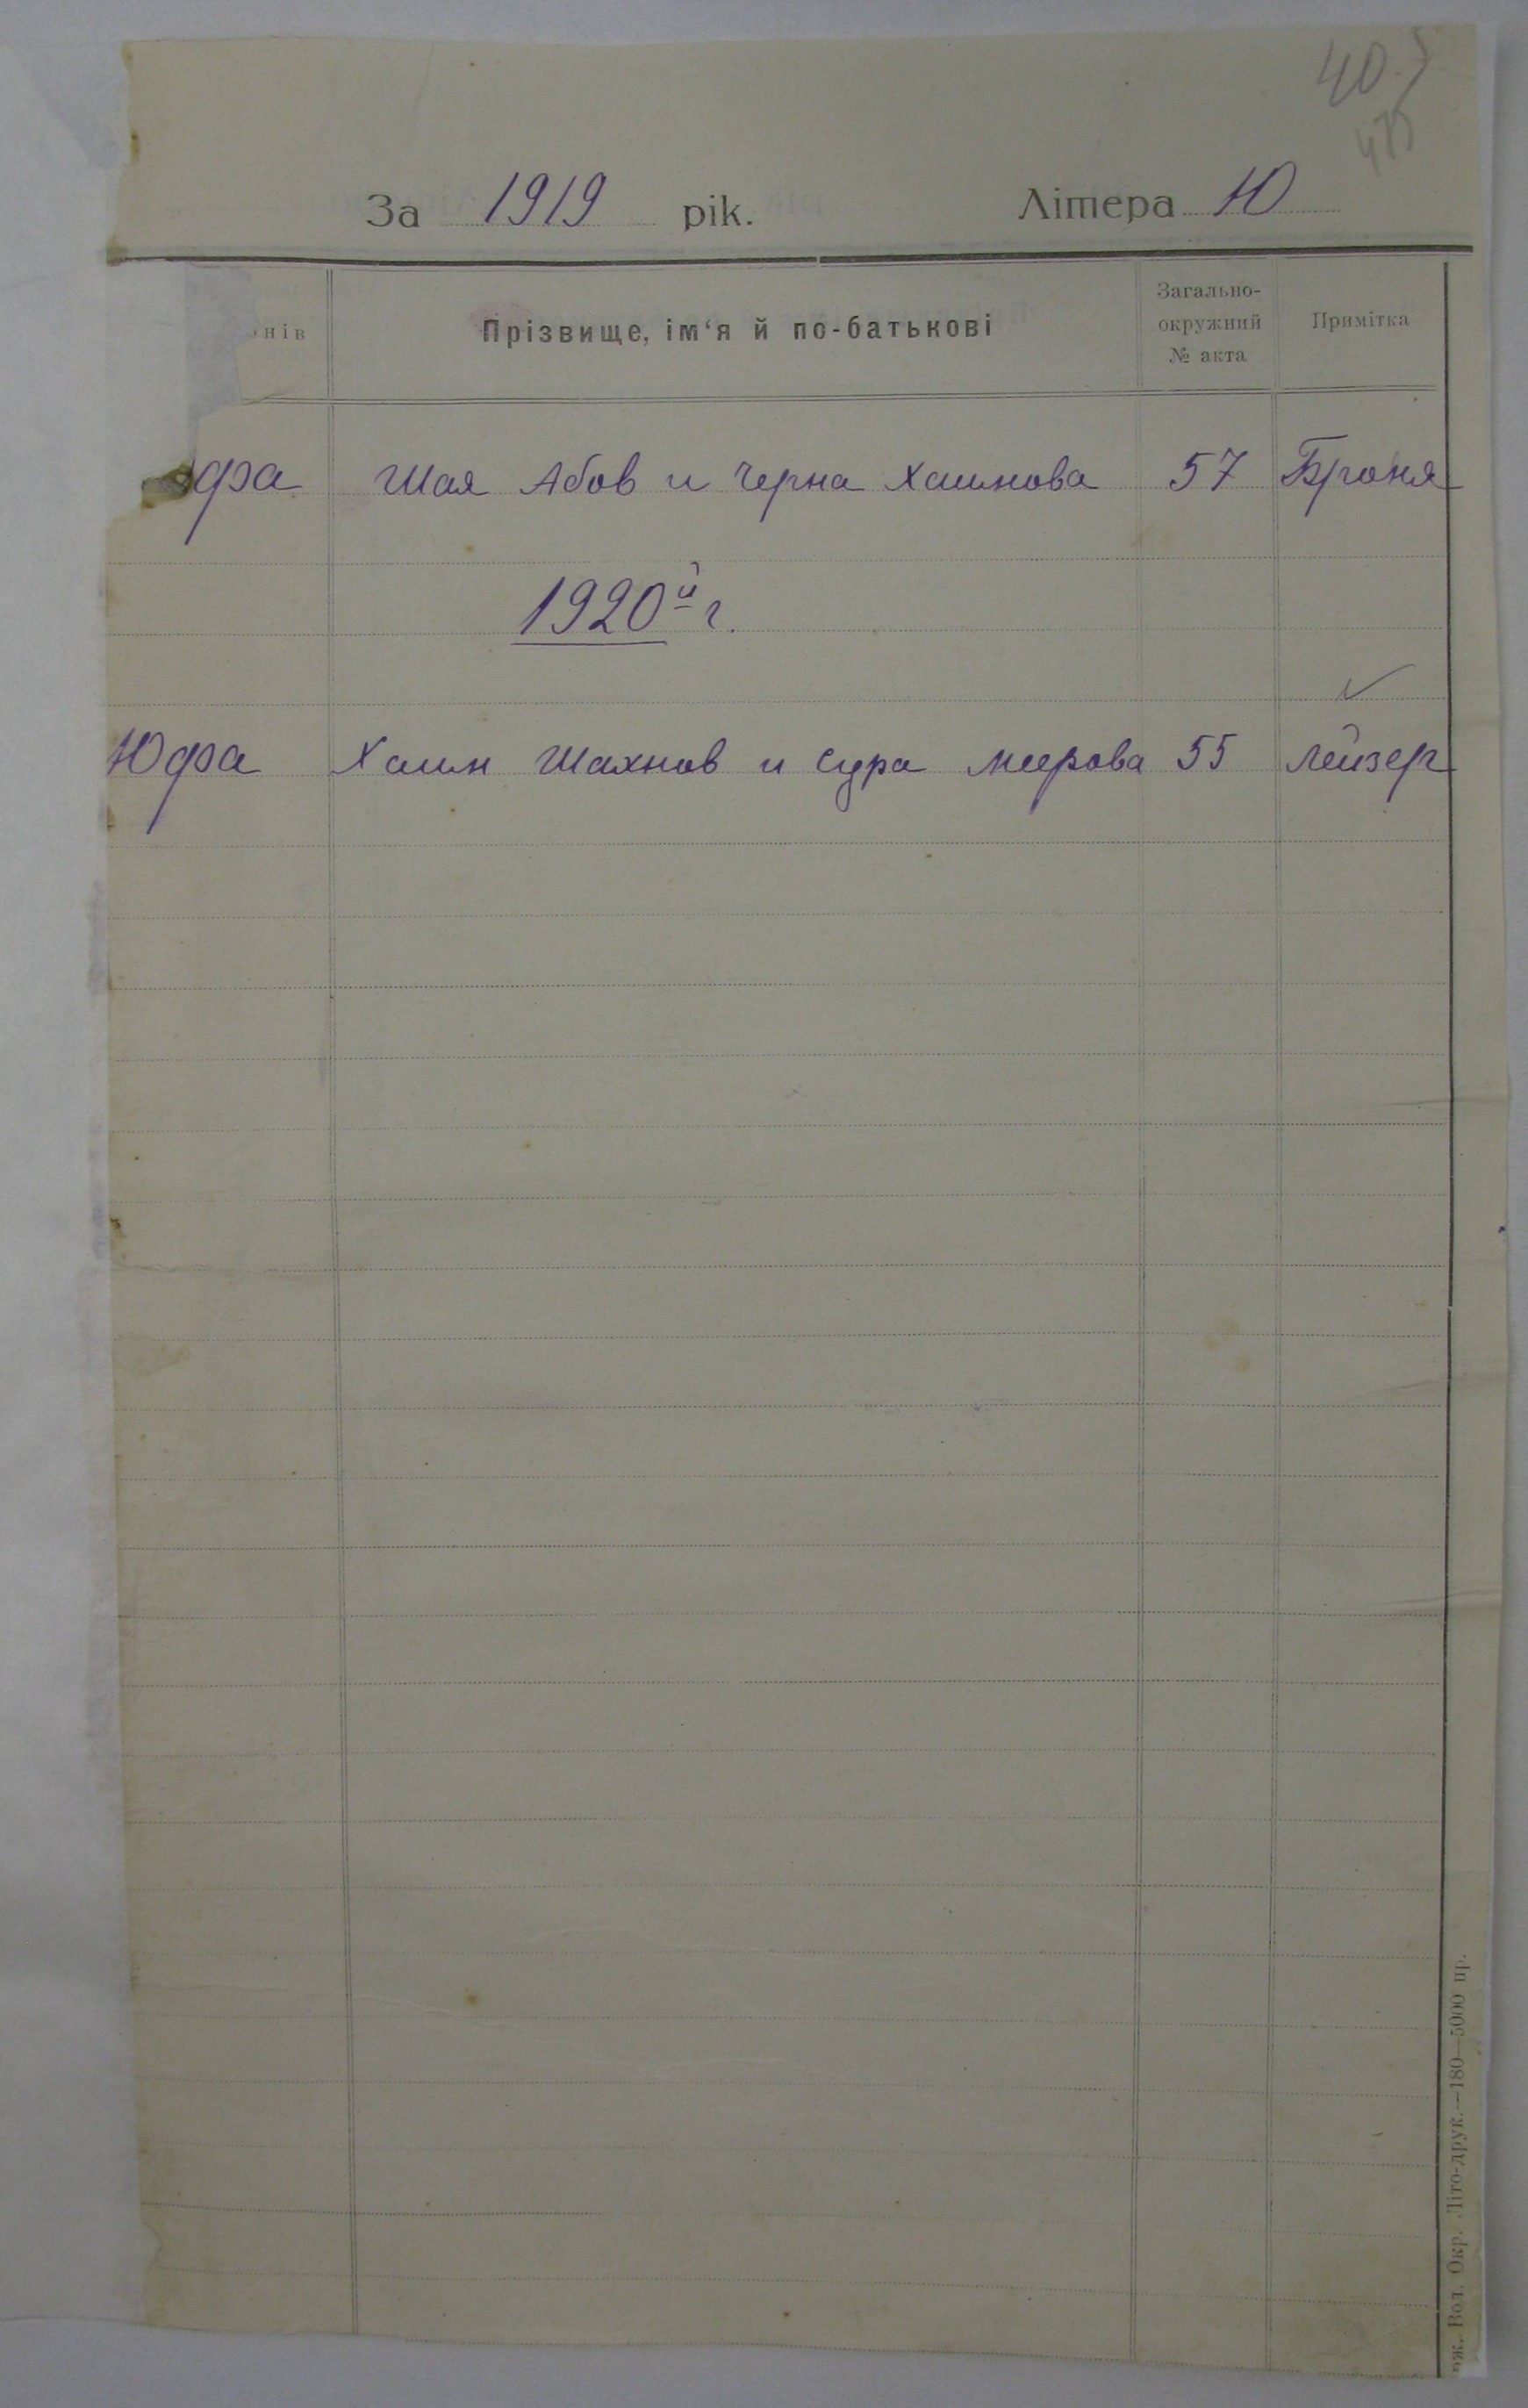 40
За 1919 рік. Літера Ю
нів
Прізвище, ім‘я й по-батькові
Загально-
окружний
№ акта
Примітка
фа Шая Абов и Черна Хаимова 57 Броня
1920й г.
Юфа Хаим Шахнов и Сура Меерова 55 Лейзер
Вол. Окр. Літо-друк.—180—5000 пр.